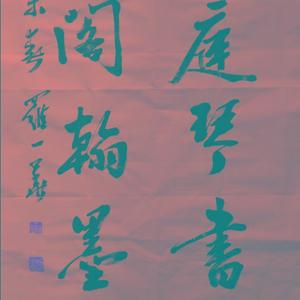 庭琴書
閣翰墨
未春 羅一